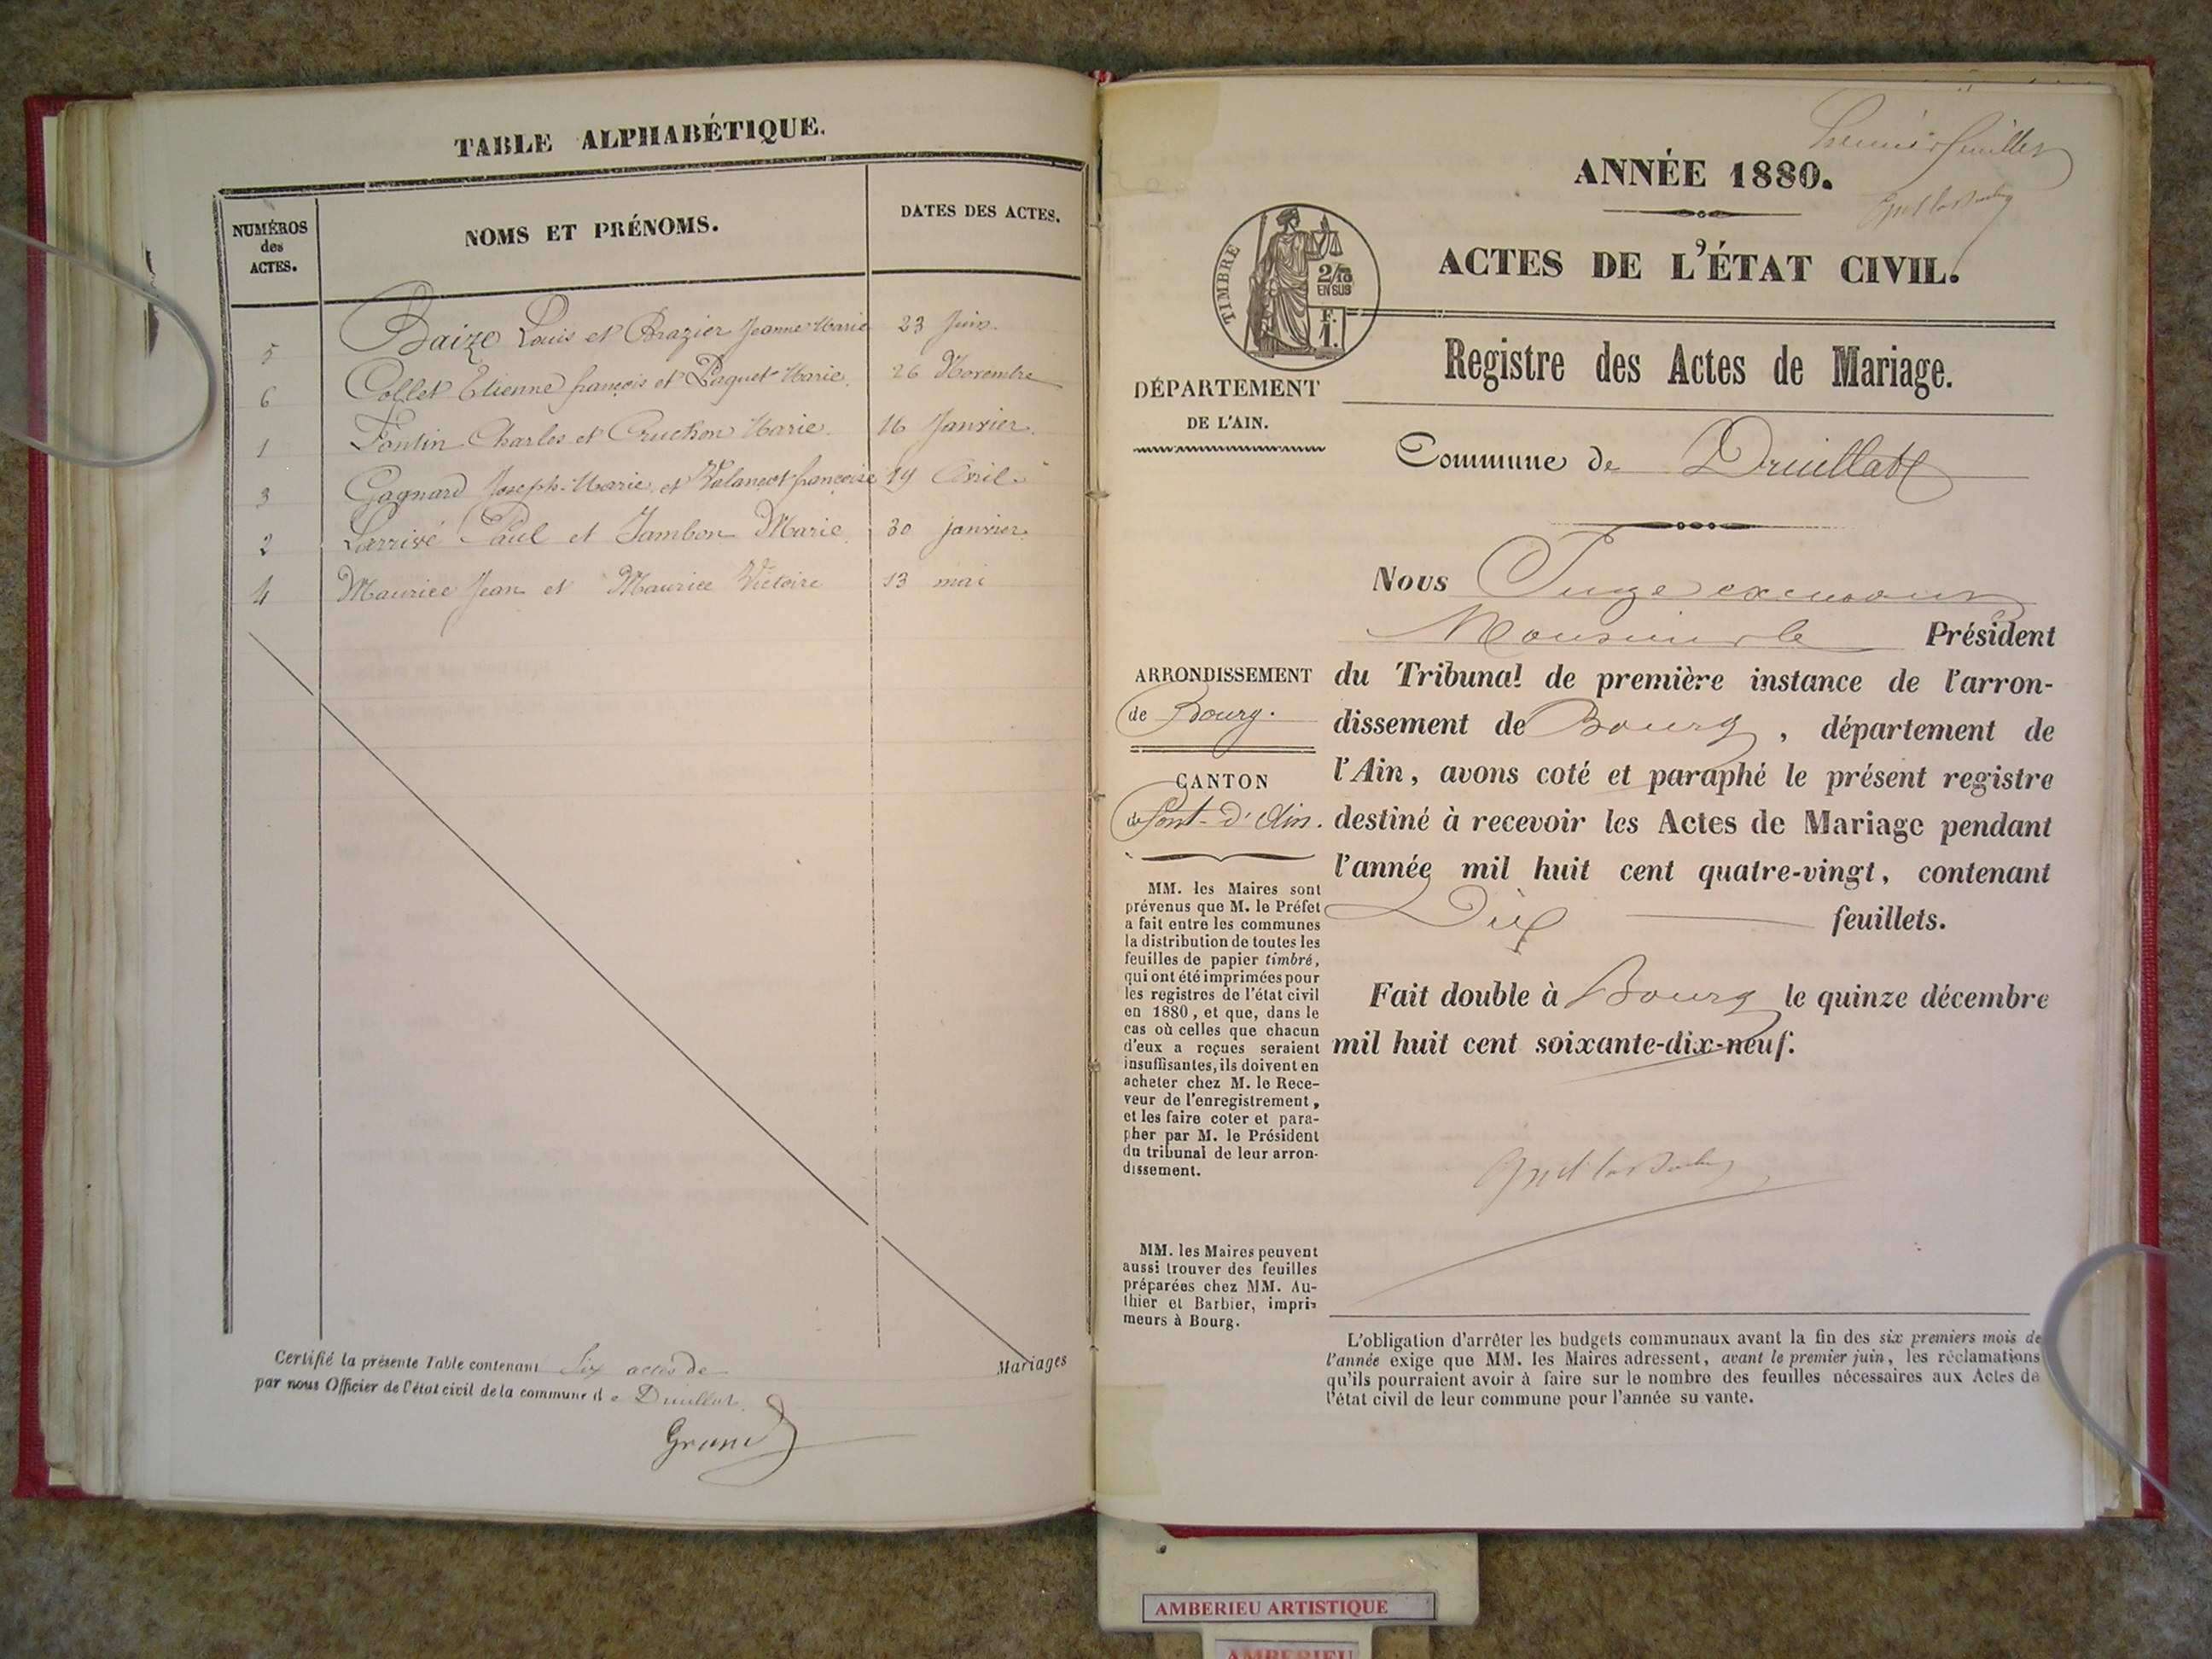 TABLE ALPHABÉTIQUE.
NUMÉROS
des
ACTES.
NOMS ET PRÉNOMS.
DATES DES ACTES.
5 Baize Louis et Brazier Jeanne Marie 23 Juin.
6 Collet Etienne françois et Paquet Marie. 26 Novembre
1 Fontin Charles et Cruchon Marie. 16 Janvier.
3 Gagnard Joseph-Marie et françoise 19 Avril.
2 Larrivé Paul et Jambon Marie. 30 janvier.
4 Maurice Jean et Maurice Victoire 13 mai
Certifié la présente Table contenant Six actes de Mariages
par nous Officier de l'état civil de la commune de Druillat.
premier feuillet
ANNÉE 1880.
ACTES DE L'ÉTAT CIVIL.
TIMBRE
2/10
EN SUS
F.
1.
Registre des Actes de Mariage.
DÉPARTEMENT
DE L'AIN.
Commune de Druillat
Nous Juge
Monsieur le Président
du Tribunal de première instance de l'arron-
dissement de Bourg, département de
l'Ain, avons coté et paraphé le présent registre
destiné à recevoir les Actes de Mariage pendant
l'année mil huit cent quatre-vingt, contenant
Dix feuillets.
Fait double à Bourg le quinze décembre
mil huit cent soixante-dix-neuf.
ARRONDISSEMENT
de Bourg.
CANTON
de Pont-d'Ain.
MM. les Maires sont
prévenus que M. le Préfet
a fait entre les communes
la distribution de toutes les
feuilles de papier timbré,
qui ont été imprimées pour
les registres de l'état civil
en 1880, et que, dans le
cas où celles que chacun
d'eux a reçues seraient
insuffisantes, ils doivent en
acheter chez M. le Rece-
veur de l'enregistrement,
et les faire coter et para-
pher par M. le Président
du tribunal de leur arron-
dissement.
MM. les Maires peuvent
aussi trouver des feuilles
préparées chez MM. Au-
thier et Barbier, impri-
meurs à Bourg.
L'obligation d'arrêter les budgets communaux avant la fin des six premiers mois de
l'année exige que MM. les Maires adressent, avant le premier juin, les réclamations
qu'ils pourraient avoir à faire sur le nombre des feuilles nécessaires aux Actes de
l'état civil de leur commune pour l'année su vante.
AMBERIEU ARTISTIQUE
AMBERIEU